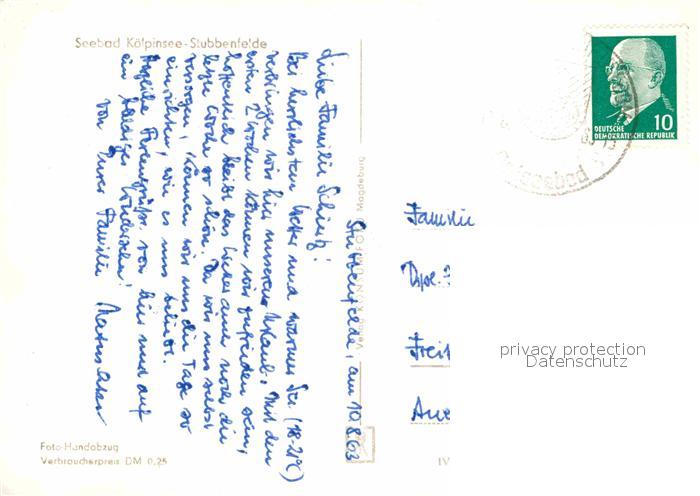 Seebad Kölpinsee-Stubbenfelde
Stubbenfelde, am 10.8.63
Liebe Familie
Bei herrlichstem Wetter und warmer See (18-21°C)
verbringen wir hier unseren Urlaub. Mit den
ersten 2 Wochen können wir zufrieden sein,
hoffentlich bleibt das Wetter auch noch die
letzte Woche so schön. Da wir uns selbst
versorgen, können wir uns die Tage so
einrichten, wie es uns beliebt.
Herzliche Feriengrüße von hier und auf
ein baldiges Wiedersehen!
von Ihrer Familie
Verlag Magdeburg
Foto-Handabzug
Verbraucherpreis DM 0,25
IV
DEUTSCHE
DEMOKRATISCHE REPUBLIK
10
Familie
Dipl.
Freit
Aue
privacy protection
Datenschutz